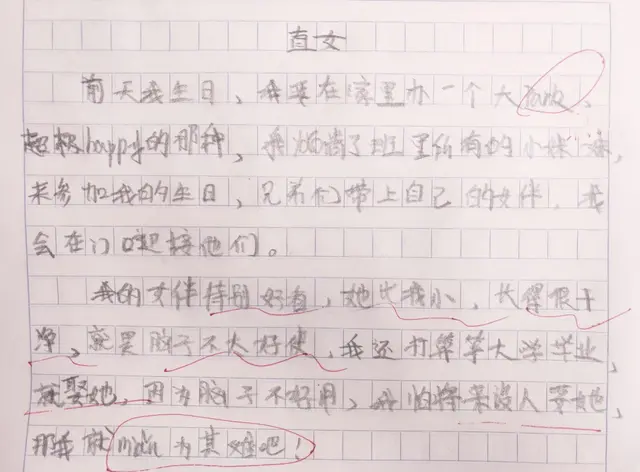 直女
前天我生日，我要在家里办一个大
超极happy的那种，我邀请了班里所有的小
来参加我的生日，兄弟们带上自己的女伴，我
会在门口迎接他们。
我的女伴特别好看，她比我小，长得很干
净，就是脑子不太好使，我还打算等大学毕业，
就娶她，因为脑子不好用，我怕将来没人要她，
那我就 为其难吧！